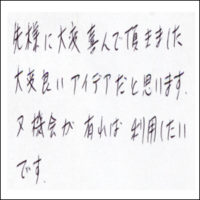 先様に大変喜んで頂きました
大変良いアイデアだと思います.
又機会が有れば利用したい
です.